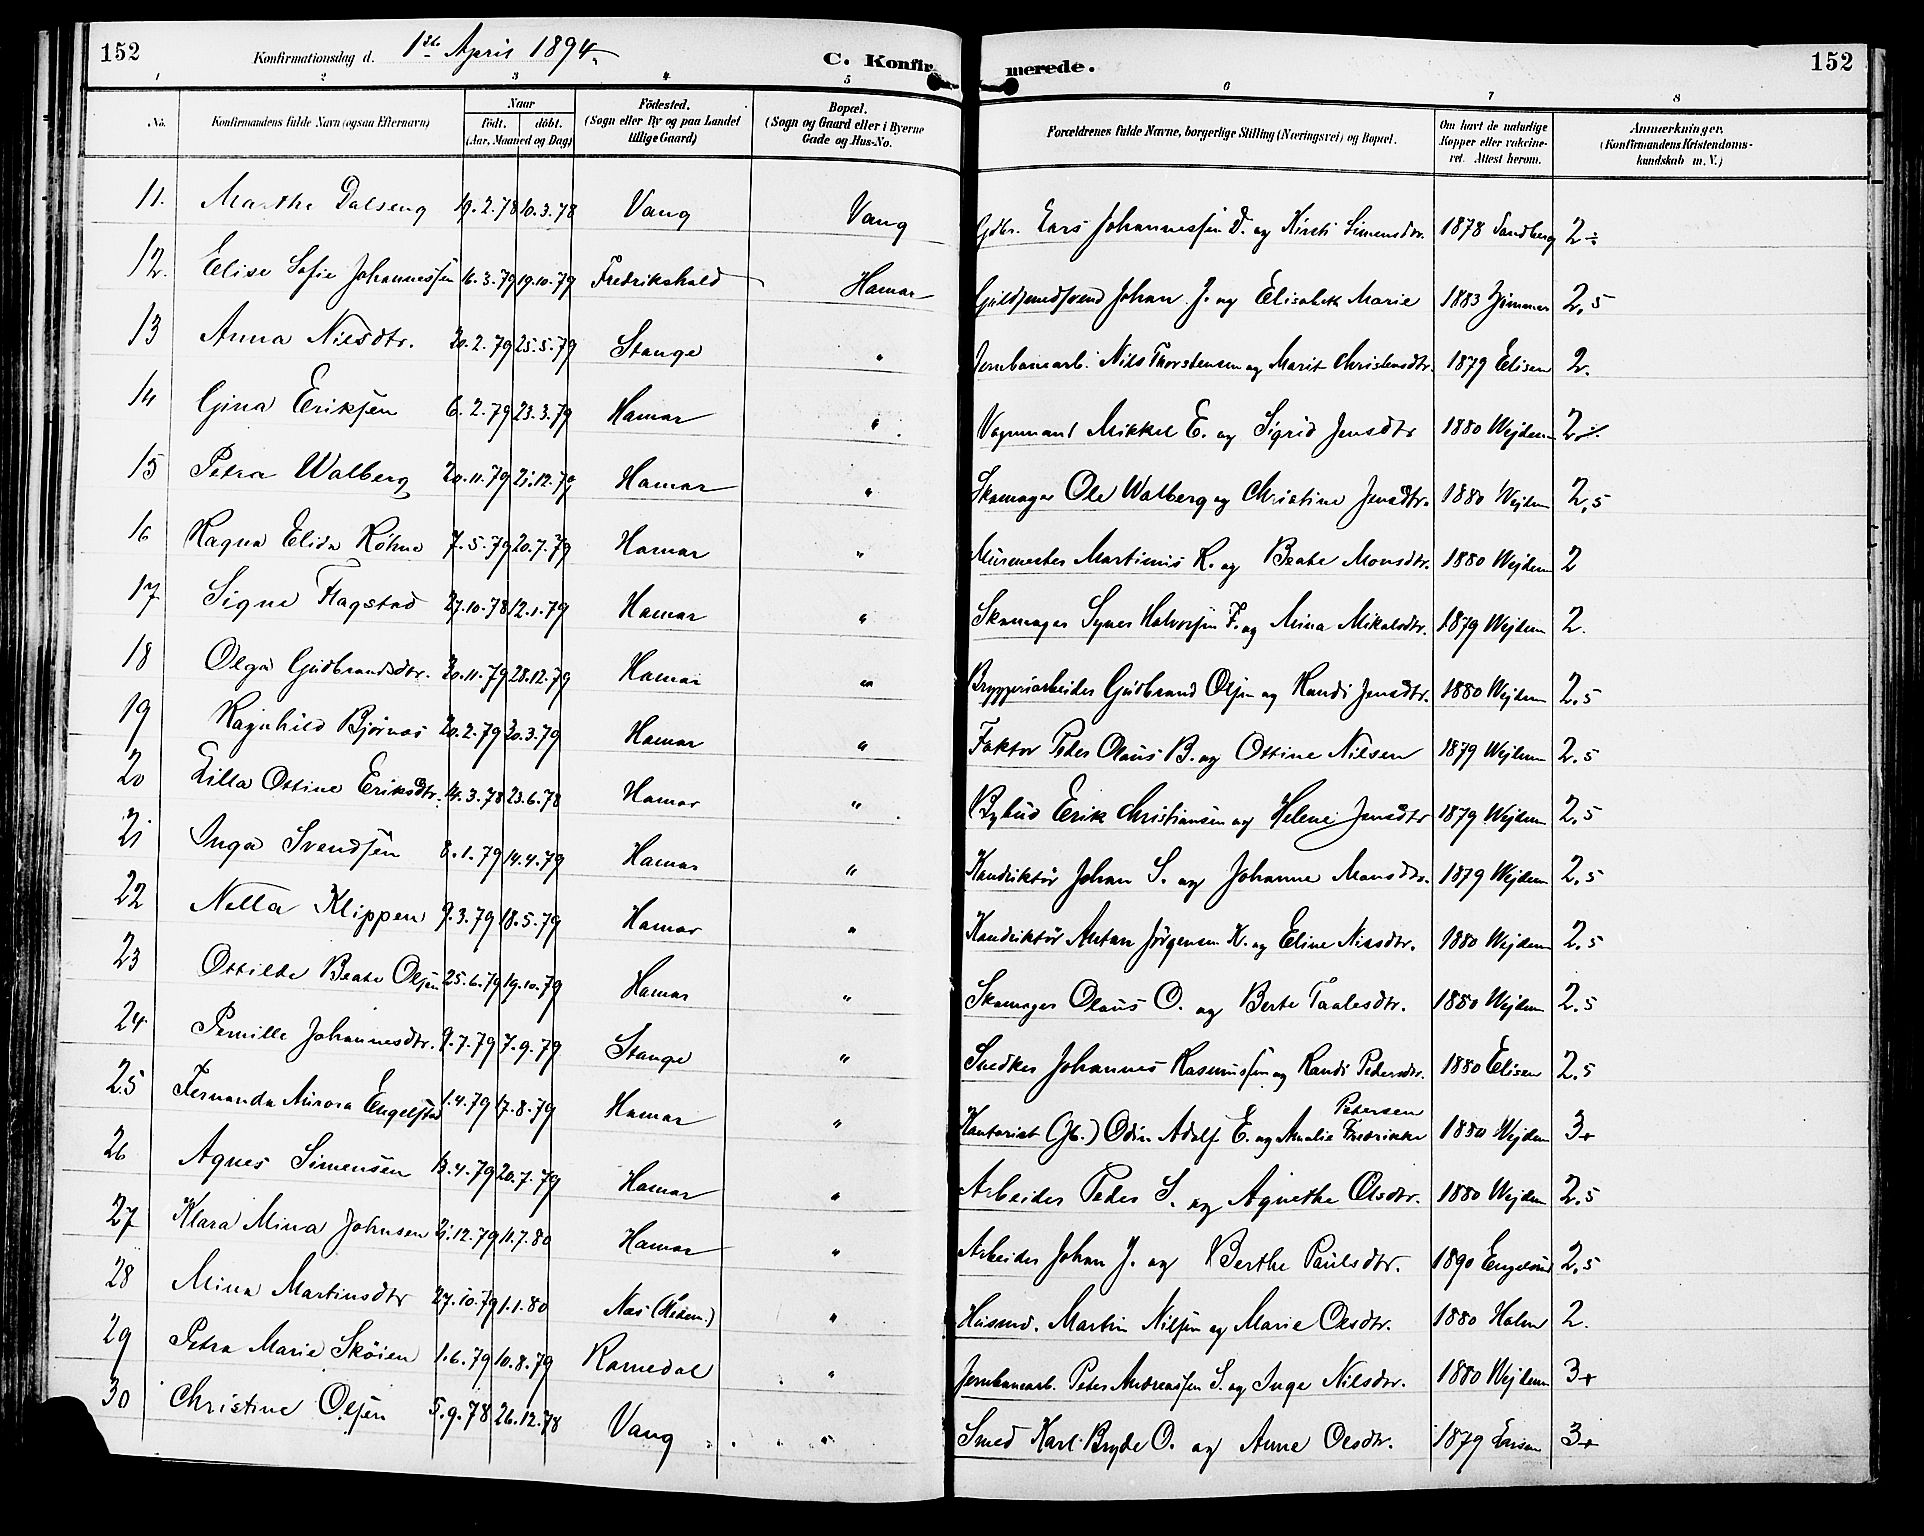 152 Konfirmationsdag d. 1ste April 1894. C. Konfirmerede. 152
1 2 3 4 5 6 7 8
No. Konfirmandens fulde Navn (ogsaa Efternavn) Naar födt. döbt. (Aar, Maaned og Dag) Födested. (Sogn eller By og paa Landet tillige Gaard) Bopæl. (Sogn og Gaard eller i Byerne Gade og Hus-No. Forældrenes fulde Navne, borgerlige Stilling (Næringsvei) og Bopæl. Om havt de naturlige Kopper eller vakcineret. Attest herom. Anmærkninger. (Konfirmandens Kristendomskundskab m. V.)
11. Marthe Dalseng 19.2.78 10.3.78 Vang Vang Gdbr. Lars Johannessen D. og Kirsti Simensdtr. 1878 Sandberg 2÷
12. Elise Sofie Johannessen 16.3.79 19.10.79 Fredrikshald Hamar Guldsmedsvend Johan J. og Elisabeth Marie 1883 Zimmer 2,5
13 Anna Nilsdtr. 20.2.79 25.5.79 Stange " Jernbanearb. Nils Thorstensen og Marit Christensdtr. 1879 Elisen 2.
14 Gina Eriksen 6.2.79 23.3.79 Hamar " Vognmand Mikkel E. og Sigrid Jensdtr 1880 Wejdem 2÷
15 Petra Walberg 20.11.79 21.12.79 Hamar " Skomager Ole Walberg og Christine Jensdtr. 1880 Wejdem 2,5
16 Ragna Elida Röhne 7.5.79 20.7.79 Hamar " Murmester Martinius R. og Beate Monsdtr. 1880 Wejdem 2
17 Signe Flagstad 27.10.78 12.1.79 Hamar " Skomager Syver Halvorsen F. og Mina Mikalsdtr. 1879 Wejdem 2.
18 Olga Gudbrandsdtr. 20.11.79 28.12.79 Hamar " Bryggeriarbeider Gudbrand Olsen og Randi Jensdtr. 1880 Wejdem 2,5
19 Ragnhild Bjørnas 20.2.79 30.3.79 Hamar " Faktor Peder Olaus B. og Ottine Nilsen 1879 Wejdem 2,5
20 Lilla Ottine Eriksdtr. 14.3.78 23.6.78 Hamar " Bybud Erik Christiansen og Helene Jensdtr 1879 Wejdem 2,5
21 Inga Svendsen 8.1.79 14.4.79 Hamar " Konduktör Johan S. og Johanne Monsdtr. 1879 Wejdem 2,5
22 Netta Klippen 9.3.79 18.5.79 Hamar " Konduktör Anton Jörgensen K. og Eline Nilsdtr. 1880 Wejdem 2,5
23 Ottilde Beate Olsen 25.6.79 19.10.79 Hamar " Skomager Olaus O. og Berte Paalsdtr. 1880 Wejdem 2,5
24 Pernille Johannesdtr. 9.7.79 7.9.79 Stange " Snedker Johannes Rasmussen og Randi Pedersdtr. 1880 Elisen 2,5
25 Fernanda Aurora Engelstad 1.4.79 17.8.79 Hamar " Kontorist (Gb.) Odin Adolf E. og Amalie Fredrikke Petersen 1880 Wejdem 3+
26 Agnes Simensen 13.4.79 20.7.79 Hamar " Arbeider Peder S. og Agnethe Olsdtr. 1880 Wejdem 2,5
27 Klara Mina Johnsen 21.12.79 11.7.80 Hamar " Arbeider Johan J. og Berthe Paulsdtr. 1890 Engelund 2,5
28 Mina Martinsdtr 27.10.79 1.1.80 Nes (Hedem.) " Husmd. Martin Nilsen og Marie Olsdtr. 1880 Holm 2.
29 Petra Marie Sköien 1.6.79 10.8.79 Romedal " Jernbanearb. Peter Andreassen S. og Inge Nilsdtr. 1880 Wejdem 3+
30 Christine Olsen 5.9.78 26.12.78 Vang " Smed Karl Bryde O. og Anne Olsdtr. 1879 3+